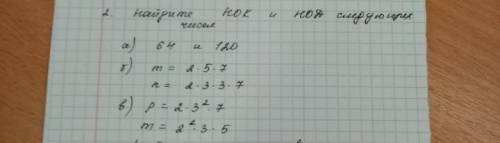 2. Найдите НОК и НОД следующих
чисел
а) 64 и 120
б) m = 2·5·7
n = 2·3·3·7
в) p = 2·3²·7
m = 2²·3·5